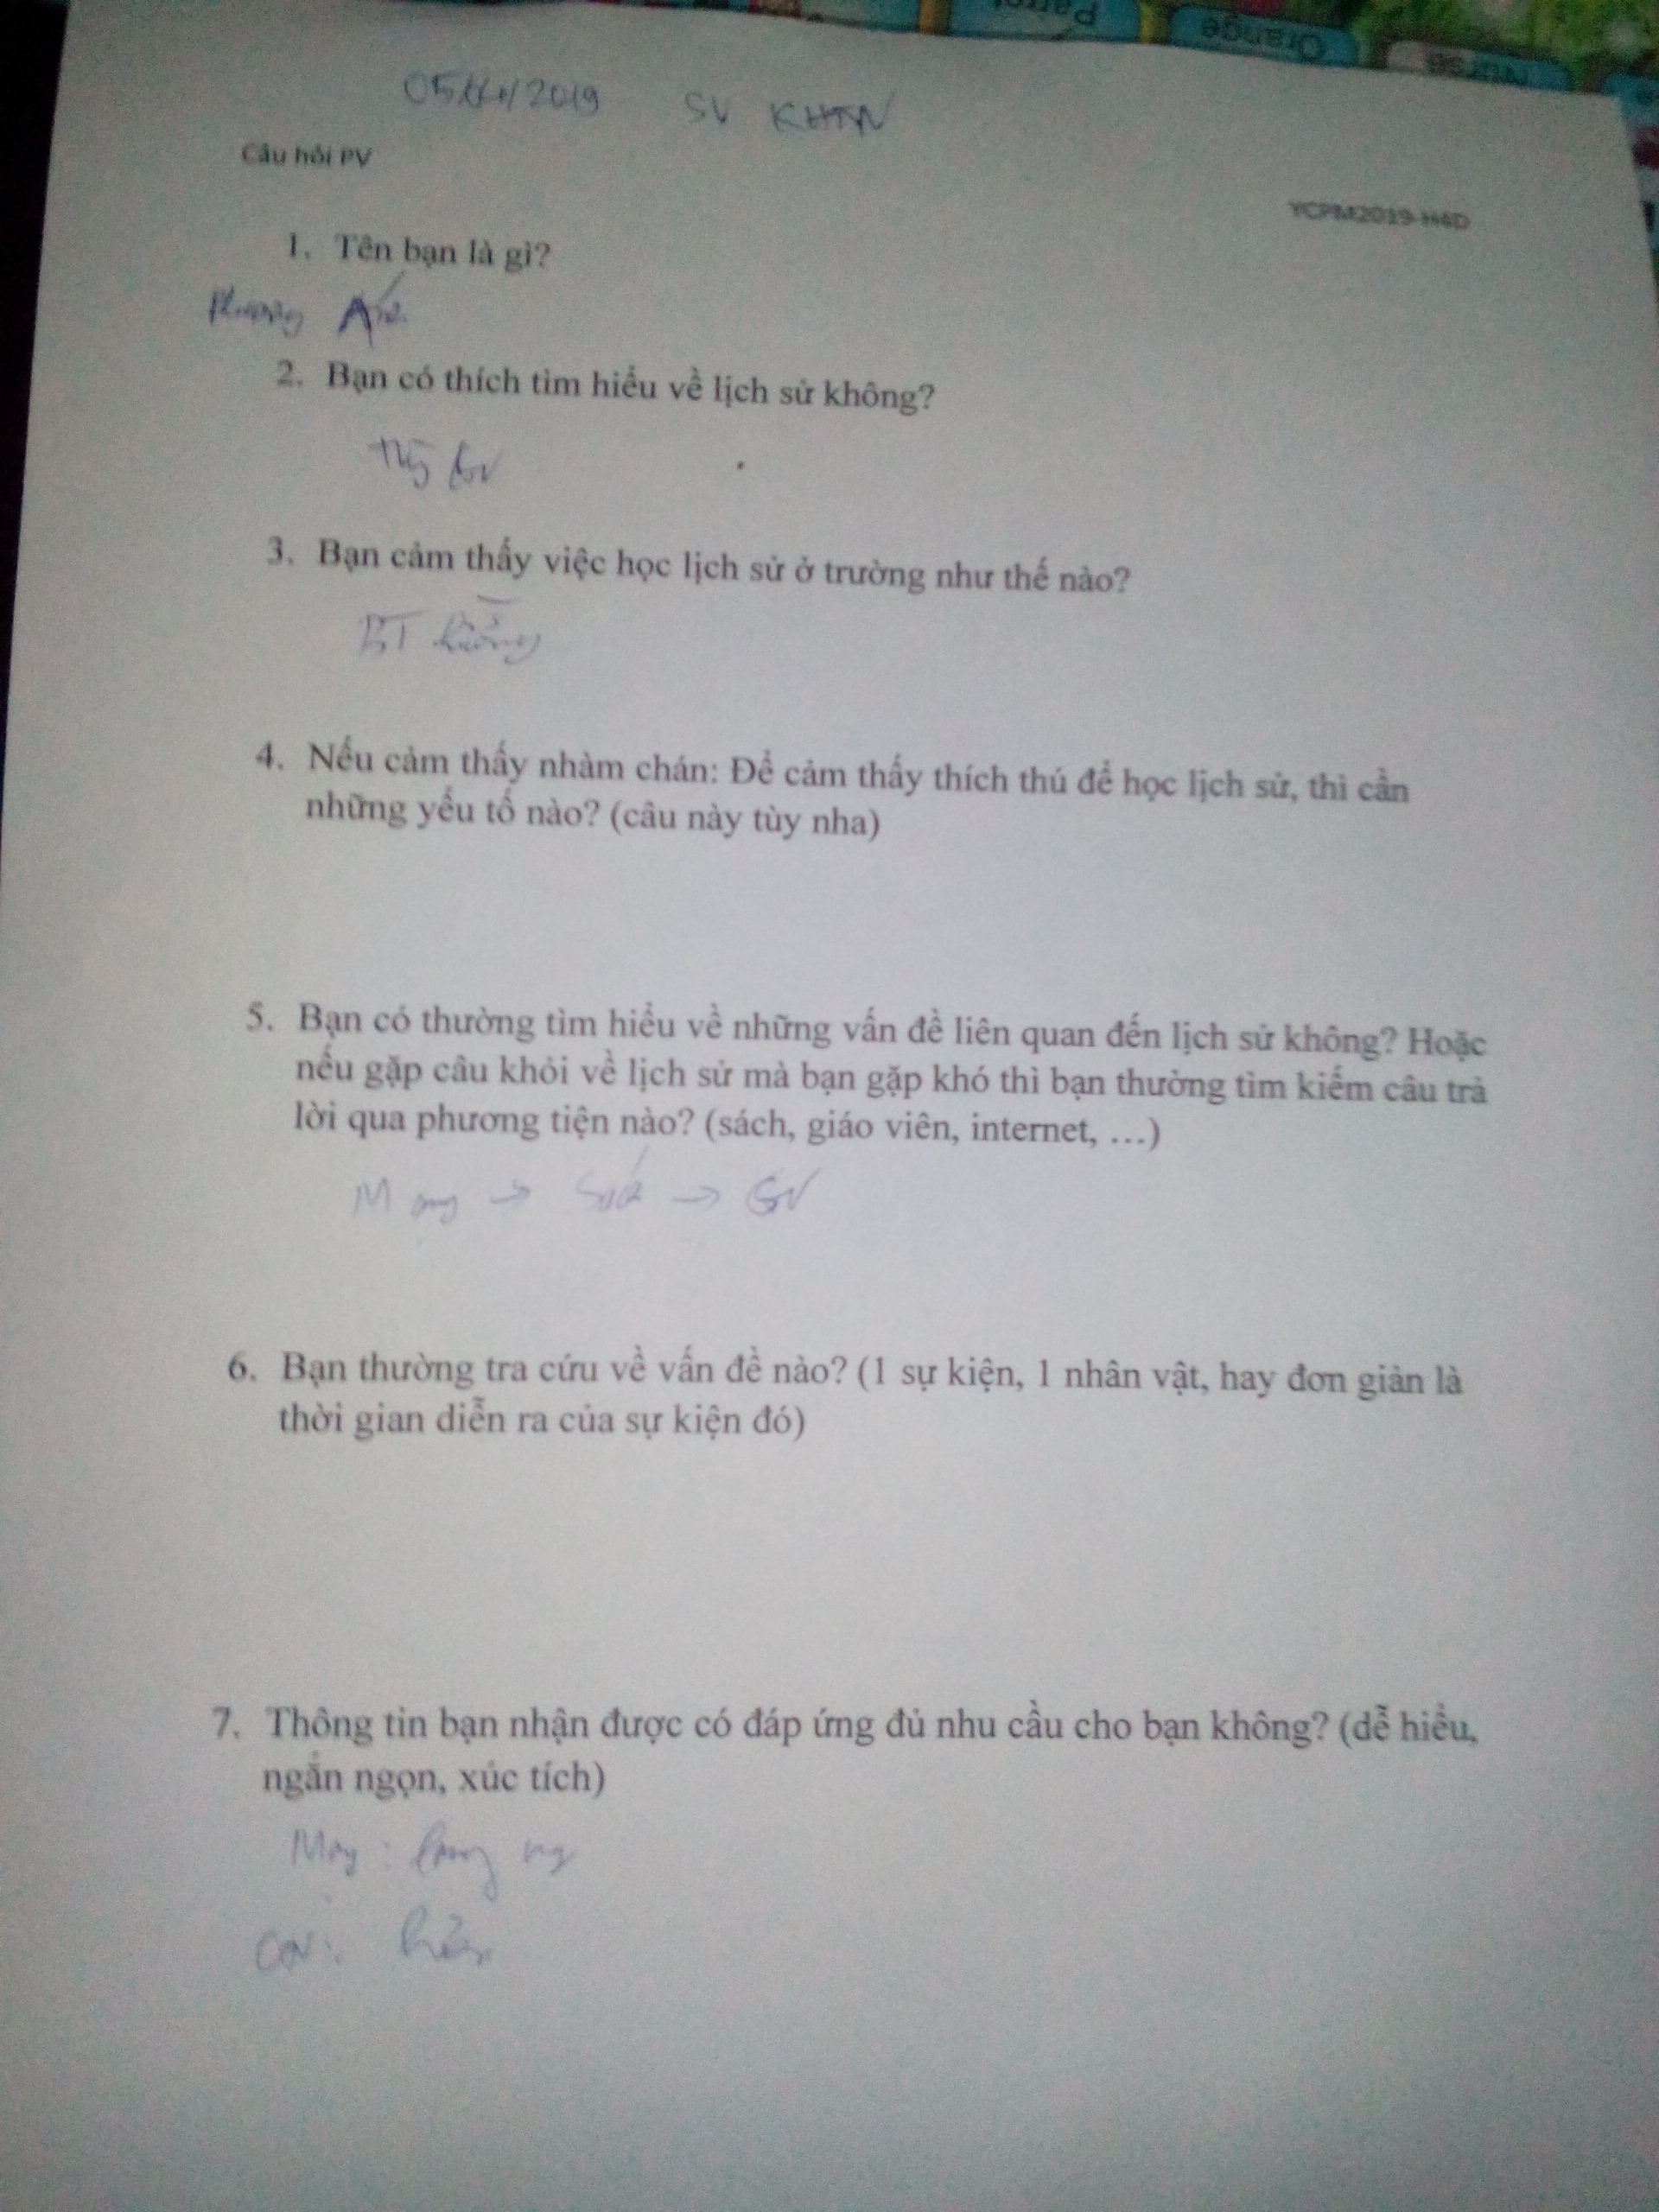 Parrot
Orange
Nurse
2019 SV KHTN
Câu hỏi PV
YCPM2019-H4D
1. Tên bạn là gì?
Phương
2. Bạn có thích tìm hiểu về lịch sử không?
3. Bạn cảm thấy việc học lịch sử ở trường như thế nào?
BT
4. Nếu cảm thấy nhàm chán: Để cảm thấy thích thú để học lịch sử, thì cần
những yếu tố nào? (câu này tùy nha)
5. Bạn có thường tìm hiểu về những vấn đề liên quan đến lịch sử không? Hoặc
nếu gặp câu khỏi về lịch sử mà bạn gặp khó thì bạn thường tìm kiếm câu trả
lời qua phương tiện nào? (sách, giáo viên, internet, …)
Mạng → Sách → GV
6. Bạn thường tra cứu về vấn đề nào? (1 sự kiện, 1 nhân vật, hay đơn giản là
thời gian diễn ra của sự kiện đó)
7. Thông tin bạn nhận được có đáp ứng đủ nhu cầu cho bạn không? (dễ hiểu,
ngắn ngọn, xúc tích)